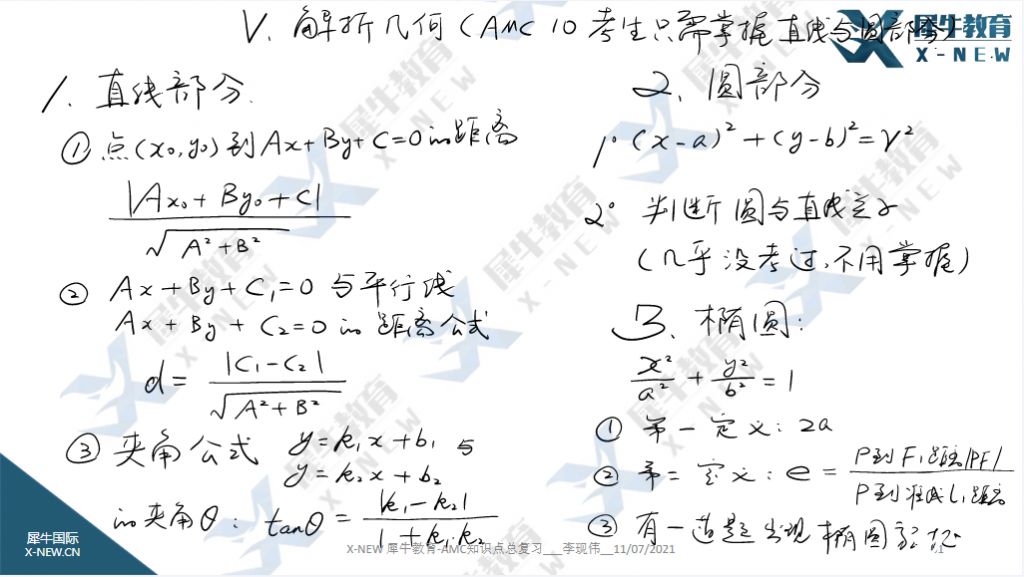 V. 解析几何 (AMC 10 考生只需掌握直线与圆部分)
犀牛教育
X-NEW
1. 直线部分.
① 点(x₀,y₀)到Ax+By+C=0的距离
|Ax₀+By₀+C|
√A²+B²
② Ax+By+C₁=0 与平行线
Ax+By+C₂=0 的距离公式
d = |C₁-C₂|
√A²+B²
③ 夹角公式 y=k₁x+b₁ 与
y=k₂x+b₂
的夹角θ: tanθ = |k₁-k₂|
1+k₁·k₂
2. 圆部分
1° (x-a)²+(y-b)²=r²
2° 判断圆与直线
(几乎没考过,不用掌握)
3. 椭圆:
x²/a² + y²/b² = 1
① 第一定义: 2a
② 第二定义: e = P到F₁距离|PF₁|
P到准线l₁距离
③ 有一道题发现椭圆
犀牛国际
X-NEW.CN
X-NEW 犀牛教育-AMC知识点总复习___李现伟__11/07/2021